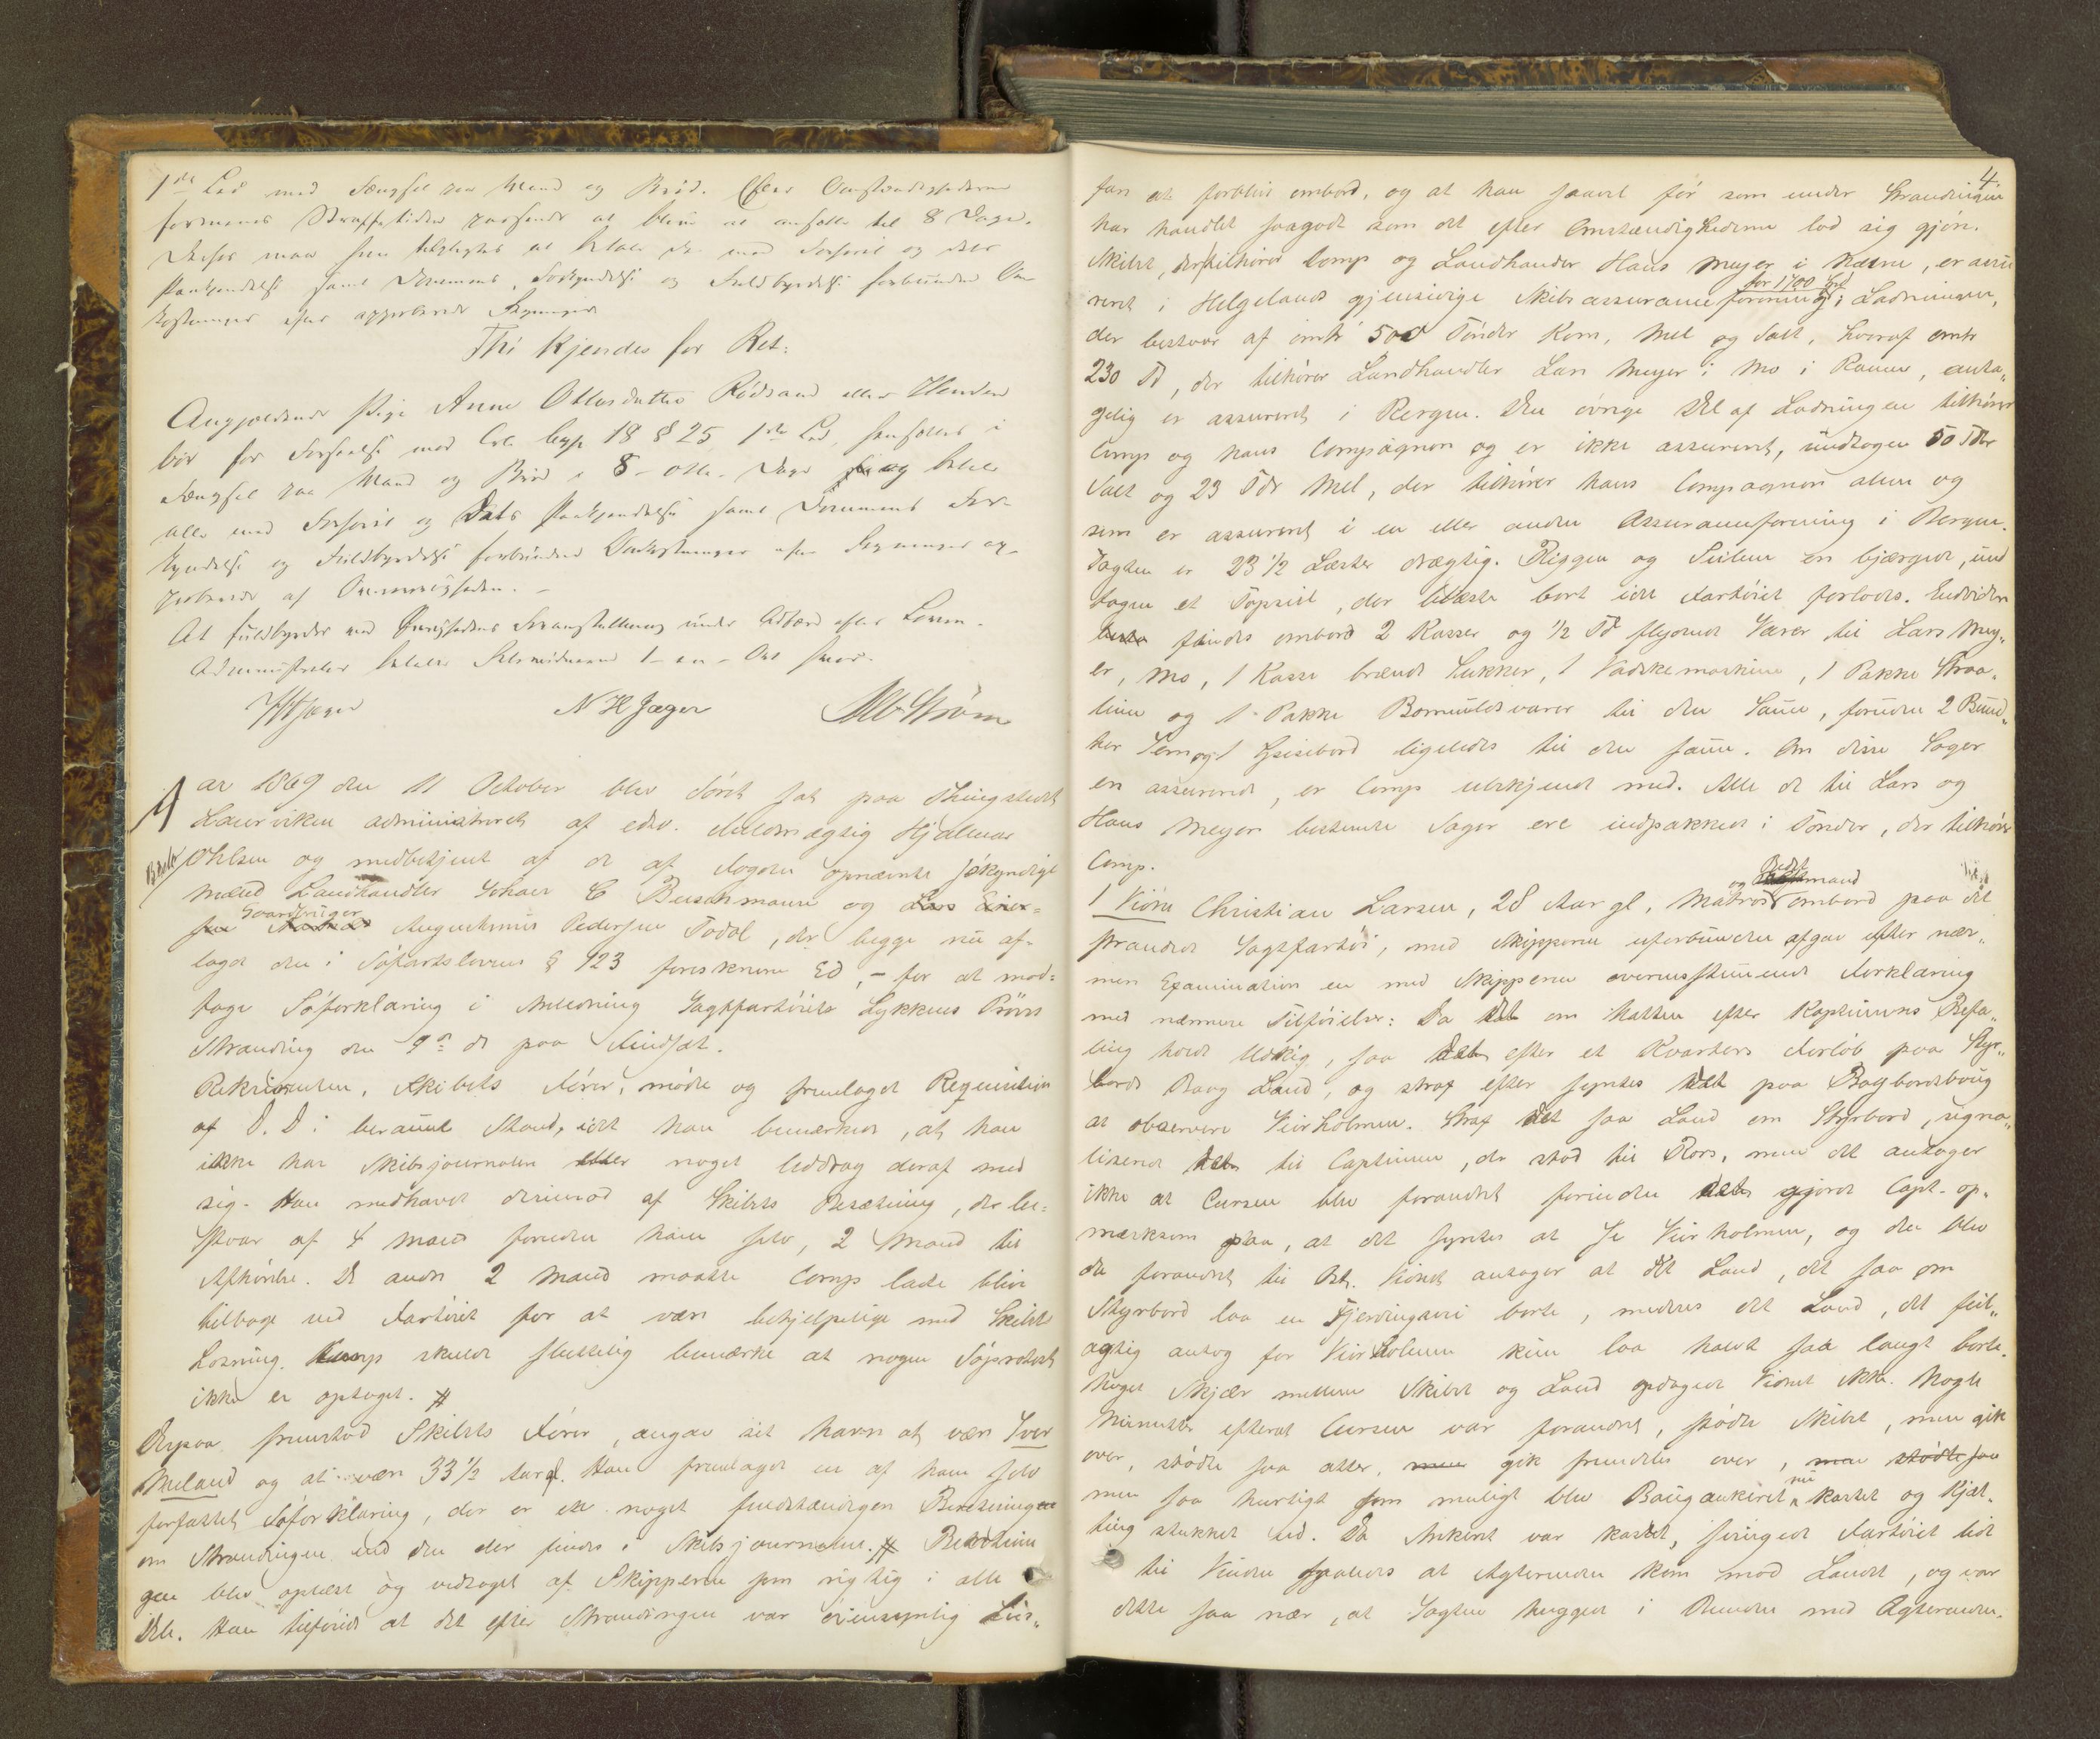 1ste Led med Fængsel paa Vand og Brød. Efter Omstændighederne
formenes Straffetiden passende at blive at ansætte til 8 Dage.
Derfor maa hun tilpligtes at betale de med Forhør og dets
Paakjendelse samt Dommens Forkyndelse og Fuldbyrdelse forbundne Om
kostninger efter approberede Regninger
Thi kjendes for Ret:
Angjældende Pige Anne Ottosdatter Rødsand eller
bør for Forseelse mod Crl. Cap 18 § 25 1ste Led, hensættes i
Fængsel paa Vand og Brød i 8 - otte - Dage og betale
alle med Forhøret og Dets Paakjendelse samt Dommens For-
kyndelse og Fuldbyrdelse forbundne Omkostninger efter Regninger ap-
proberede af Øvrigheden. -
At fuldbyrdes ved Øvrighedens Foranstaltning under Adfærd efter Loven.
Administrator betaler
HHJæger N H Jæger Strøm
Aar 1869 den 11 October blev Søret sat paa Thingstedet
Laurviken administreret af edsv. Fuldmægtig Hjalmar
Ohlsen og medbetjent af de af Fogden opnævnte søkyndige
Mænd Landhandler Johan C Buschmann og Lars
Gaardbruger
Augustinus Pedersen Todal, der begge nu af-
lagde den i Søfartslovens § 123 foreskrevne Ed, - for at mod-
tage Søforklaring i Anledning Jagtfartøiet Lykkens Prøves
Stranding den 9de ds paa Findsæt.
Rekvirenten, Skibets Fører, mødte og fremlagde Requisition
af D. D. i beramte Stand, idet han bemærkede, at han
ikke har Skibsjournalen eller noget Uddrag deraf med
sig. Han medhavde derimod af Skibets Besætning, der be-
stoar af 4 Mand foruden ham selv, 2 Mand til
Afhørelse. De andre 2 Mand maatte Comp lade blive
tilbage ved Fartøiet for at være behjelpelige med Skibets
Losning. Comp skulde sluttelig bemærke at nogen Søprotest
ikke er optaget. #
Derpaa fremstod Skibets Fører, angav sit Navn at være Iver
Meland og at være 33 1/2 Aar gl. Han fremlagde en af ham selv
forfattet Søforklaring, der er en noget fuldstændigere Beretningen
om Strandingen end den der findes i Skibsjournalen. # Beretnin
gen blev oplæst og vedtaget af Skipperen som rigtig i alle
Dele. Han tilføiede at det efter Strandingen var øiensynlig Livs„
4.
fare at forblive ombord, og at han saavel før som under Strandingen
har handlet saagodt som det efter Omstændighederne lod sig gjøre.
Skibet, der tilhører Comp og Landhandler Hans Meyer i Ranen, er assu
for 1700 Spd
reret i Helgelands gjensidige Skibsassuranceforening; Ladningen,
der bestoar af omtr 500 Tønder Korn, Mel og Salt, hvoraf omtr
230 Td, der tilhører Landhandler Lars Meyer i Mo i Ranen, anta„
gelig er assureret i Bergen. Den øvrige Del af Ladningen tilhører
Comp og hans Compagnon og er ikke assureret, undtagen 50 Tdr
Salt og 23 Tdr Mel, der tilhører hans Compagnon alene og
som er assureret i en eller anden Assuranceforening i Bergen.
Jagten er 23 1/2 Læster drægtig. Riggen og Seilene er bjærgede, und
tagen et Topseil, der blæste bort idet Fartøiet forlodes. Endvidere
findes ombord 2 Kasser og 1/2 Td flydende Varer til Lars Mey„
er, Mo, 1 Kasse brændt Sukker, 1 Vadskemaskine, 1 Pakke Straa„
tine og 1 Pakke Bomuldsvarer til den Samme, foruden 2 Bund„
ter Jern og 1 Spisebord ligeledes til den samme. Om disse Sager
ere assurerede, er Comp ubekjendt med. Alle de til Lars og
Hans Meyer bestemte Sager ere indpakkede i Tønder, der tilhører
Comp.
og Bedstmand
1 Vidne Christian Larsen, 28 Aar gl, Matros ombord paa det
strandede Jagtfartøi, med Skipperen uforbunden afgav efter nær„
mere Examination en med Skipperen overensstemmende Forklaring
med nærmere Tilføielser: Da Det om Natten efter Kapteinens Befa„
ling holdt Udkig, saa Det efter et Kvarters Forløb paa Styr„
bords Boug Land, og strax efter syntes Det paa Bagbordsboug
at observere Veirholmen. Strax Det saa Land om Styrbord, signa„
liserede Det til Capteinen, der stod til Rors, men det antager
ikke at Cursen blev forandret forinden Det gjorde Capt. op„
mærksom paa, at det syntes at se Veirholmen, og den blev
da forandret til Ost. Vidnet antager at det Land, det saa om
Styrbord laa en Fjerdingsvei borte, medens det Land, det feil„
agtig antog for Veirholmen kun laa halvt saa langt borte.
Noget Skjær mellem Skibet og Land opdagede Vidnet ikke. Nogle
Minutter efterat Cursen var forandret, stødte Skibet, men gik
over, stødte saa atter, men gik fremdeles over, men stødte saa
men saa hurtigt som muligt blev Baugankeret nu kastet og Kjæt„
ting stukket ud. Da Ankeret var kastet, svingede Fartøiet lidt
til Vinden saaledes at Agterenden kom mod Landet, og var
dette saa nær, at Jagten huggede i Bunden med Agterenden.